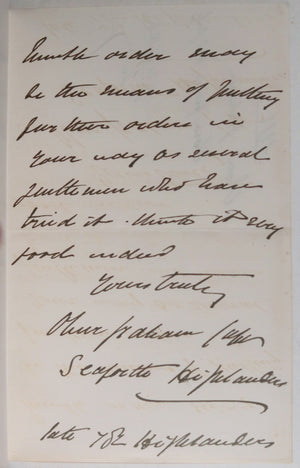 humble order may
be the means of putting
further orders in
your way as several
gentlemen who have
tried it think it very
good indeed
Yours truly
Oliver Graham Capt
Seaforth Highlanders
late 78th Highlanders